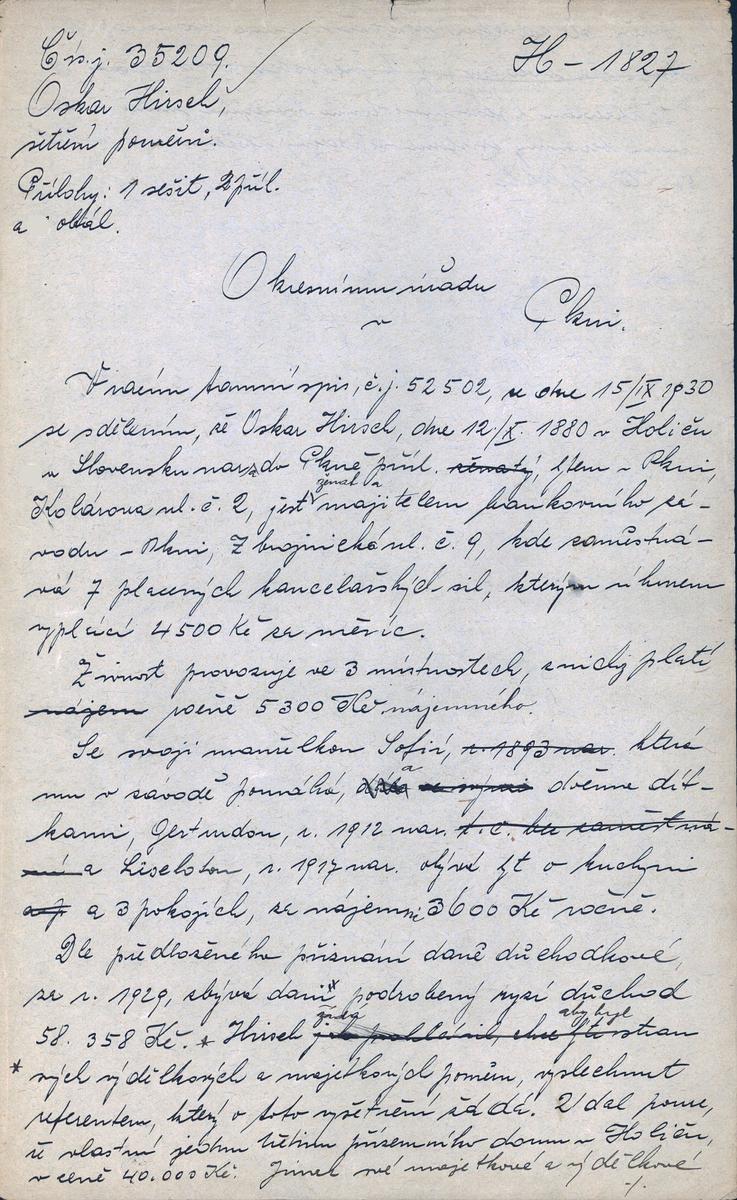 Čís.j. 35209.
H – 1827
Oskar Hirsch,
šetření poměrů.
Přílohy: 1 sešit, 2 příl.
a obál.
Okresnímu úřadu
v
Plzni.
Vracím tamní spis, č.j. 52502, ze dne 15/IX 1930
se sdělením, že Oskar Hirsch, dne 12./X. 1880 v Holiči
na Slovensku nar. do Plzně přísl. ženatý, bytem v Plzni,
ženat a
Kolárova ul. č. 2, jest majitelem bankovního zá-
vodu v Plzni, Zbrojnická ul. č. 9, kde zaměstná-
vá 7 placených kancelářských sil, kterým úhrnem
vyplácí 4500 Kč za měsíc.
Živnost provozuje ve 3 místnostech, z nichž platí
nájem ročně 5300 Kč nájemného.
Se svojí manželkou Sofií, r. 1893 nar. která
mu v závodě pomáhá, a se svými dvěma dít-
kami, Gertrudou, r. 1912 nar. t.č. bez zaměstná-
ní a Liselotou, r. 1917 nar. obývá byt o kuchyni
a 3 pokojích, za nájemné 3600 Kč ročně.
Dle předloženého přiznání daně důchodkové,
za r. 1929, zbývá dani podrobený ryzí důchod
58.358 Kč. * Hirsch žádá aby byl stran
* svých výdělkových a majetkových poměrů, vyslechnut
referentem, který o toto vyšetření žádá. Udal pouze,
že vlastní jednu třetinu přízemního domu v Holiči,
v ceně 40.000 Kč. Jinak své majetkové a výdělkové
./.